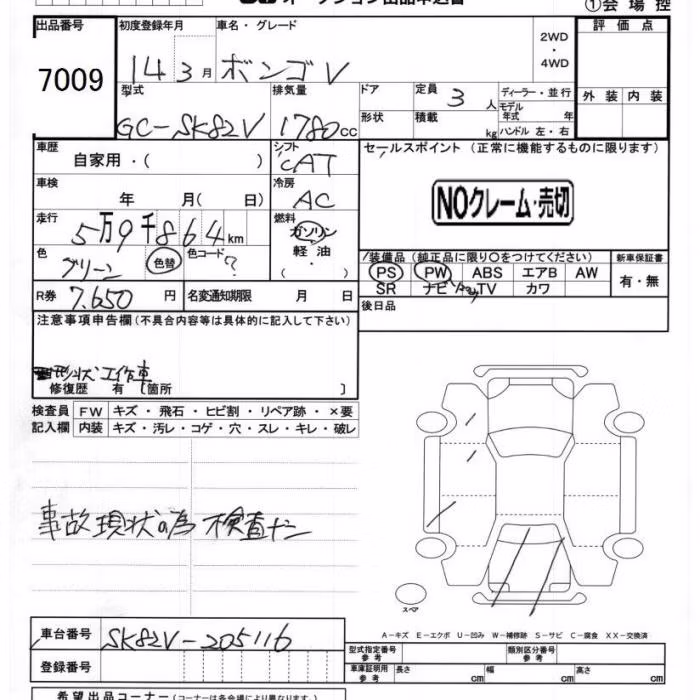 ①会場控
出品番号
7009
初度登録年月
14 3月
車名・グレード
ボンゴV
2WD
・
4WD
評価点
外装 内装
型式
GC-SK82V
排気量
1780cc
ドア
形状
定員 3 人
積載 kg
ディーラー・並行
モデル年式 年
ハンドル 左・右
車歴
自家用・( )
シフト
CAT
セールスポイント (正常に機能するものに限ります)
NOクレーム・売切
車検
年 月( 日)
冷房
AC
走行
5万9千864km
燃料
ガソリン
軽油
・
( )
色
グリーン
色替
色コード
?
装備品 (純正品に限り〇をつけてください)
新車保証書
PS PW ABS エアB AW
SR ナビ TV カワ
有・無
R券 7.650 円
名変通知期限 月 日
後日品
注意事項申告欄 (不具合内容等は具体的に記入して下さい)
形状工作車
修復歴 有 [箇所 ]
検査員記入欄
FW キズ・飛石・ヒビ割・リペア跡・×要
内装 キズ・汚レ・コゲ・穴・スレ・キレ・破レ
事故現状の為 検査ナシ
スペア
A-キズ E-エクボ U-凹み W-補修跡 S-サビ C-腐食 XX-交換済
車台番号 SK82V-205116
登録番号
型式指定番号 参考
類別区分番号 参考
車庫証明用 参考 長さ cm 幅 cm 高さ cm
希望出品コーナー (コーナーは各会場により異なります。)